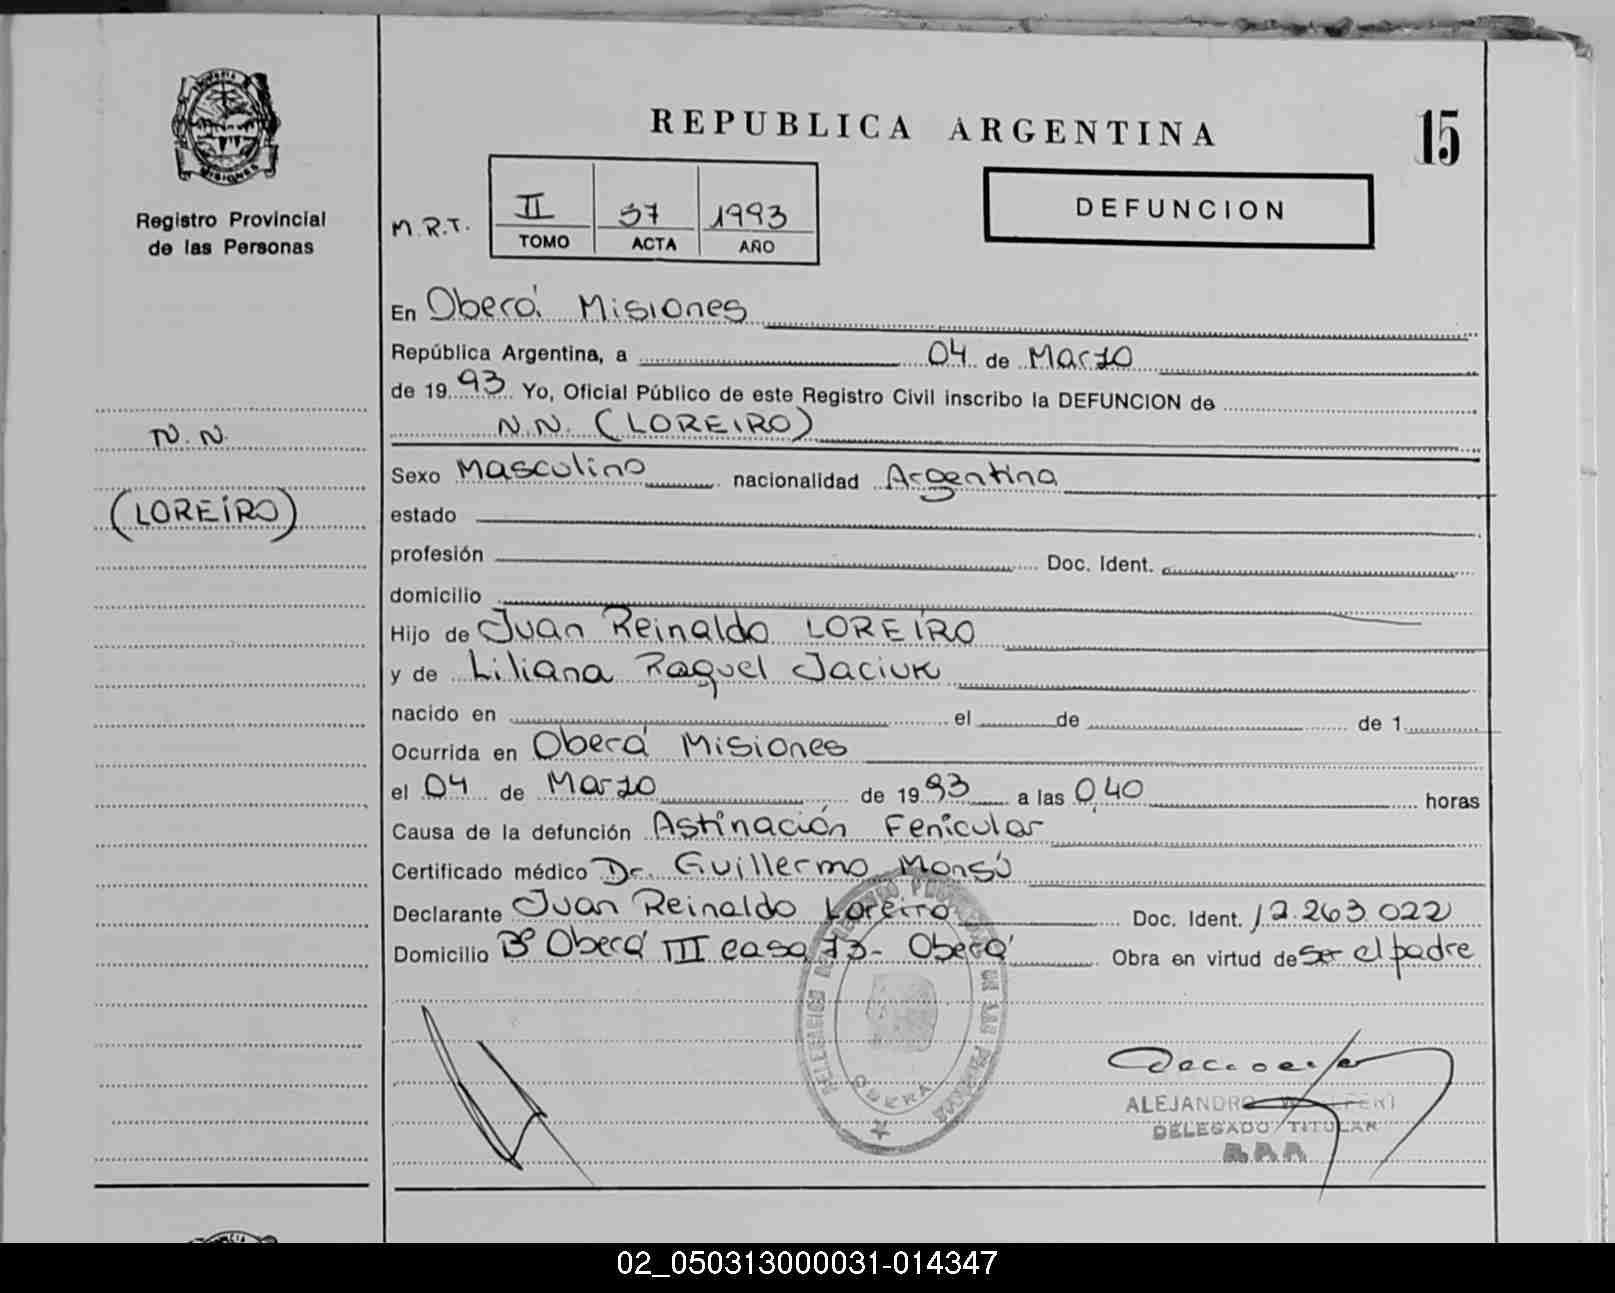 REPUBLICA ARGENTINA
15
Registro Provincial
de las Personas
MISIONES
M.R.T.
II 37 1993
TOMO ACTA AÑO
DEFUNCION
N.N.
(LOREIRO)
En Oberá Misiones
República Argentina, a 04 de Marzo
de 1993 Yo, Oficial Público de este Registro Civil inscribo la DEFUNCION de
N.N. (LOREIRO)
Sexo Masculino nacionalidad Argentina
estado
profesión Doc. Ident.
domicilio
Hijo de Juan Reinaldo LOREIRO
y de Liliana Raquel Jaciuk
nacido en el de de 1
Ocurrida en Oberá Misiones
el 04 de Marzo de 1993 a las 0,40 horas
Causa de la defunción Astinación Fenicular
Certificado médico Dr. Guillermo Monsú
Declarante Juan Reinaldo Loreiro Doc. Ident. 12.263.022
Domicilio Bº Oberá III casa 73- Oberá Obra en virtud de ser el padre
OBERA
ALEJANDRO
DELEGADO TITULAR
02_050313000031-014347